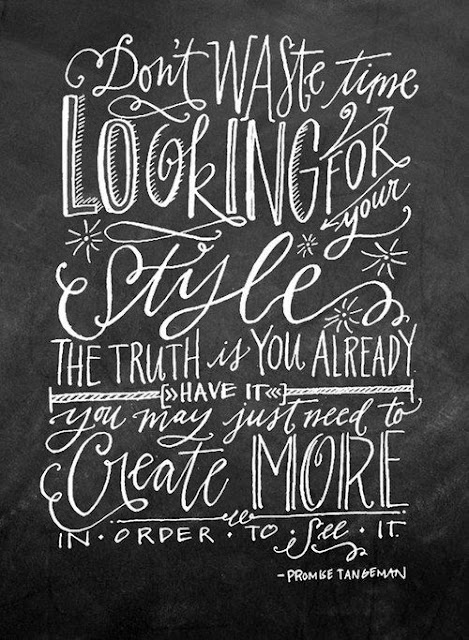 Don't WASte time
LOOkING FOR
your
style
THE TRUTH is YOU ALREADY
HAVE IT
you may just need to
Create MORE
IN · ORDER · TO · See · IT.
- PROMISE TANGEMAN